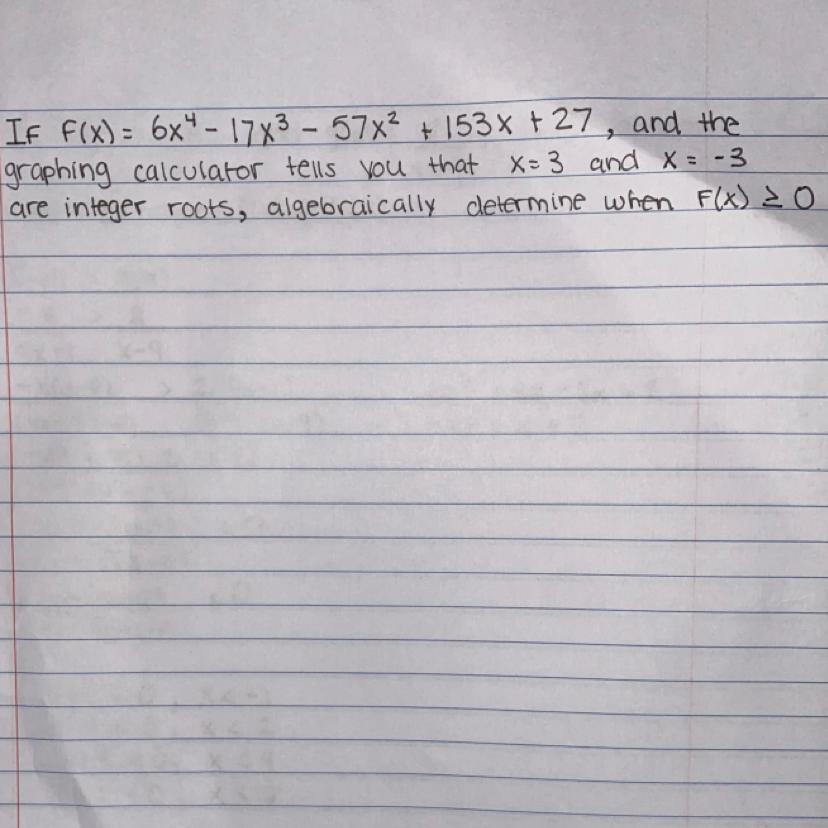 If F(x) = 6x⁴ - 17x³ - 57x² + 153x + 27, and the
graphing calculator tells you that x = 3 and x = -3
are integer roots, algebraically determine when F(x) ≥ 0